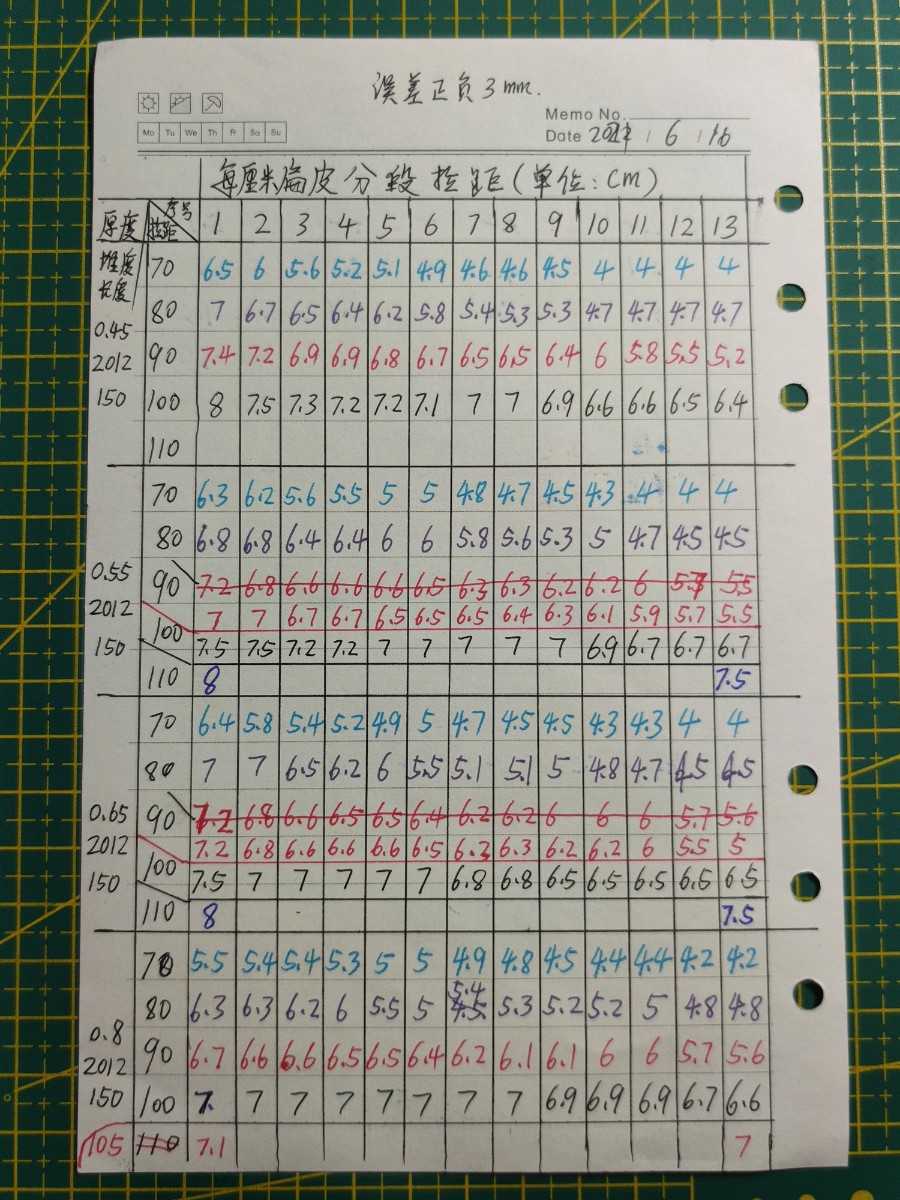 误差正负3mm.
Memo No.
Mo Tu We Th Fr Sa Su
Date / 6 / 16
每厘米扁皮分段拉距(单位:cm)
厚度 序号 拉距 1 2 3 4 5 6 7 8 9 10 11 12 13
锥度 长度 70 6.5 6 5.6 5.2 5.1 4.9 4.6 4.6 4.5 4 4 4 4
80 7 6.7 6.5 6.4 6.2 5.8 5.4 5.3 5.3 4.7 4.7 4.7 4.7
0.45 2012 90 7.4 7.2 6.9 6.9 6.8 6.7 6.5 6.5 6.4 6 5.8 5.5 5.2
150 100 8 7.5 7.3 7.2 7.2 7.1 7 7 6.9 6.6 6.6 6.5 6.4
110
70 6.3 6.2 5.6 5.5 5 5 4.8 4.7 4.5 4.3 4 4 4
80 6.8 6.8 6.4 6.4 6 6 5.8 5.6 5.3 5 4.7 4.5 4.5
0.55 90 7.2 6.8 6.6 6.6 6.6 6.5 6.3 6.3 6.2 6.2 6 5.7 5.5
2012 7 7 6.7 6.7 6.5 6.5 6.5 6.4 6.3 6.1 5.9 5.7 5.5
150 100 7.5 7.5 7.2 7.2 7 7 7 7 7 6.9 6.7 6.7 6.7
110 8 7.5
70 6.4 5.8 5.4 5.2 4.9 5 4.7 4.5 4.5 4.3 4.3 4 4
80 7 7 6.5 6.2 6 5.5 5.1 5.1 5 4.8 4.7 4.5 4.5
0.65 90 7.2 6.8 6.6 6.5 6.5 6.4 6.2 6.2 6 6 6 5.7 5.6
2012 7.2 6.8 6.6 6.6 6.6 6.5 6.3 6.3 6.2 6.2 6 5.5 5
150 100 7.5 7 7 7 7 7 6.8 6.8 6.5 6.5 6.5 6.5 6.5
110 8 7.5
70 5.5 5.4 5.4 5.3 5 5 4.9 4.8 4.5 4.4 4.4 4.2 4.2
80 6.3 6.3 6.2 6 5.5 5 5.4 4.5 5.3 5.2 5.2 5 4.8 4.8
0.8 2012 90 6.7 6.6 6.6 6.5 6.5 6.4 6.2 6.1 6.1 6 6 5.7 5.6
150 100 7. 7 7 7 7 7 7 7 6.9 6.9 6.9 6.7 6.6
105 110 7.1 7